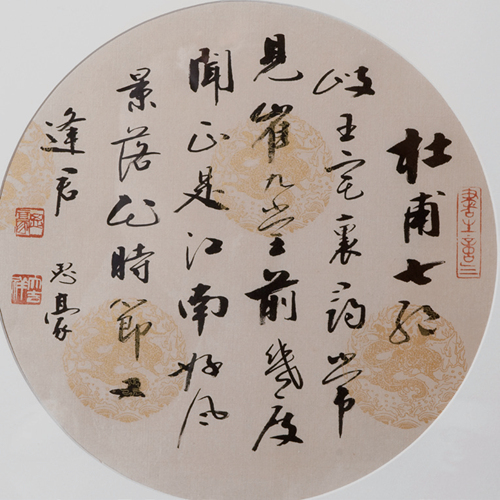 杜甫七绝
岐王宅裏尋常
見崔九堂前幾度
聞正是江南好風
景落花時節又
逢君